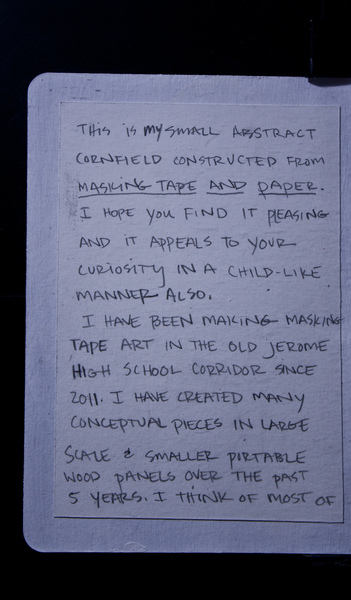 THIS IS MY SMALL ABSTRACT
CORNFIELD CONSTRUCTED FROM
MASKING TAPE AND PAPER.
I HOPE YOU FIND IT PLEASING
AND IT APPEALS TO YOUR
CURIOSITY IN A CHILD-LIKE
MANNER ALSO.
I HAVE BEEN MAKING MASKING
TAPE ART IN THE OLD JEROME
HIGH SCHOOL CORRIDOR SINCE
2011. I HAVE CREATED MANY
CONCEPTUAL PIECES IN LARGE
SCALE & SMALLER PORTABLE
WOOD PANELS OVER THE PAST
5 YEARS. I THINK OF MOST OF